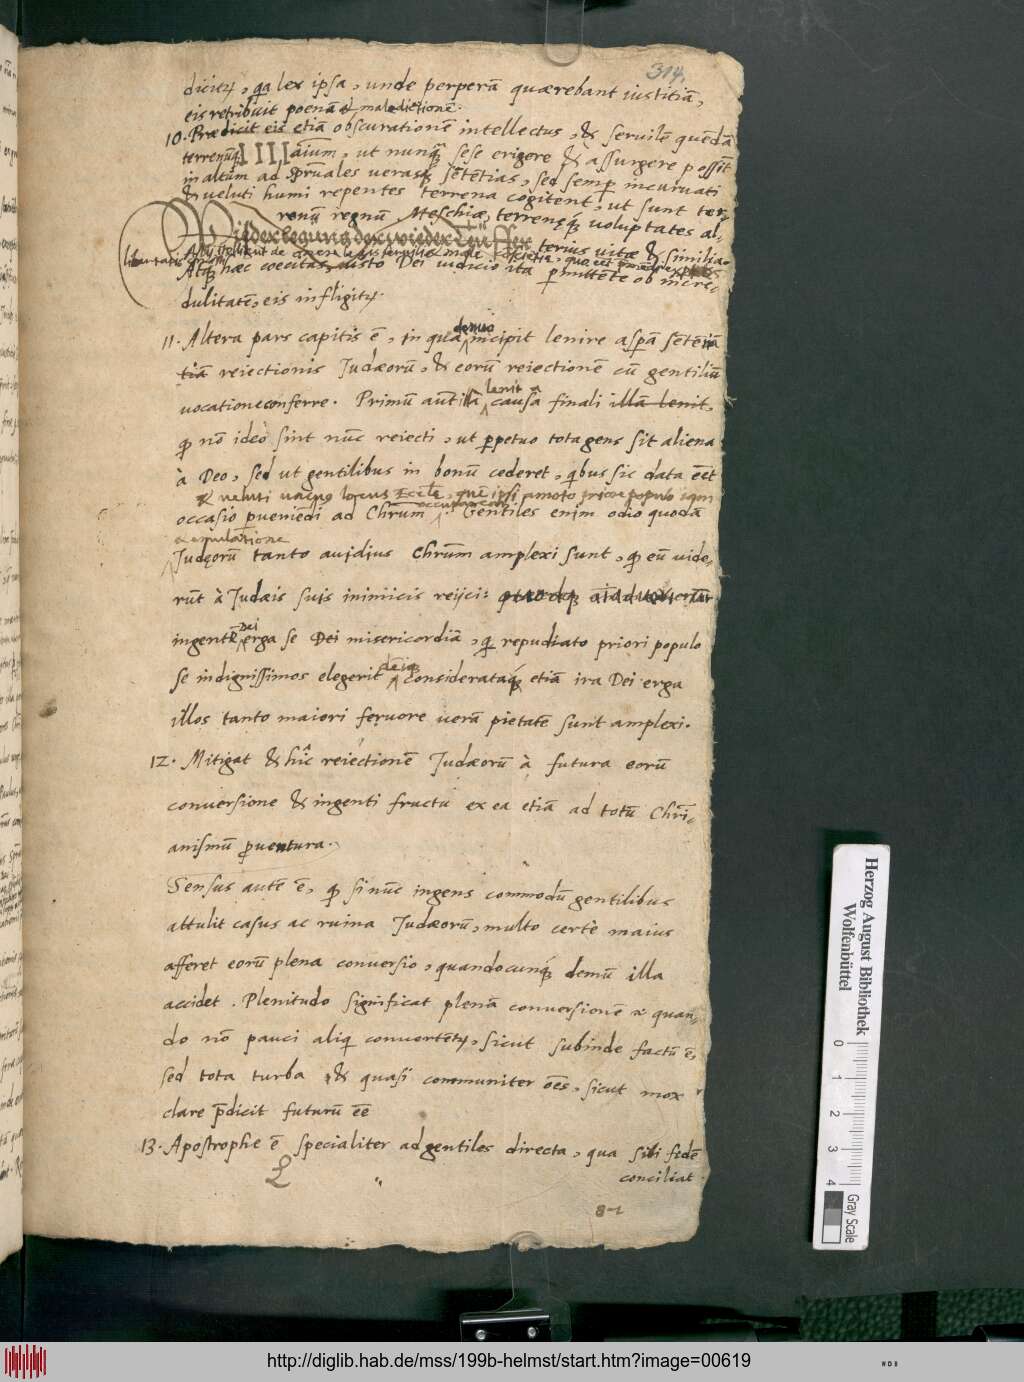 314.
diciũ, qa lex ipsa, unde perperã quærebant iustitiã,
eis retribuit poenã et maledictionẽ.
10. Prædicit eis etiã obscurationẽ intellectus, & seruilẽ quẽdã
terrenũq aĩum, ut nunq̃ sese erigere & assurgere possĩt
in altũm ad sp̃ruales verasq̃ sẽtẽtias, sed semp incuruati
& veluti humi repentes terrena cogitent, ut sunt ter-
renũ regnũ Meschiæ, terrenęq́ voluptates al-
Wiederlegung der wieder Teuffer
terius uitæ & similia.
libertatis
Atq hæc coecitas, iusto Dei iudicio ita pmittẽte ob incre-
dulitatẽ, eis infligitr.
11. Altera pars capitis ẽ, in qua denuo incipit lenire aspã sẽtẽtiã
tiã reiectionis Judæorũ, & eorũ reiectionẽ cũ gentiliũ
uocatione conferre. Primũ aut illã lenit a causa finali illã lenit,
q nõ ideo sint nũc reiecti, ut ppetuo tota gens sit aliena
à Deo, sed ut gentilibus in bonũ cederet, qbus sic data eẽt
& veluti uacuo locus Eccłæ, quẽ ipsi amoto priore populo
occasio pueniẽdi ad Chrũm occuparent. Gentiles enim odio quodã
aemulatione
Judęorũ tanto auidius Chrũm amplexi sunt, q eũ uide-
rũt à Judæis suis inimicis reijci:
ingentẽ Dei erga se Dei misericordiã, q repudiato priori populo
se indignissimos elegerit dẽiq consideratаq́ etiã ira Dei erga
illos tanto maiori feruore uerã pietatẽ sunt amplexi.
12. Mitigat & hĩc reiectionẽ Judæorũ à futura eorũ
conuersione & ingenti fructu ex ea etiã ad totũ Chri-
anismũ puentura.
Sensus autẽ ẽ, q si nũc ingens commodũ gentilibus
attulit casus ac ruina Judæorũ, multo certè maius
afferet eorũ plena conuersio, quandocunq́ demũ illa
accidet. Plenitudo significat plenã conuersionẽ quan-
do nõ pauci aliq conuertẽtr, sicut subinde factũ ẽ,
sed tota turba & quasi communiter oẽs, sicut mox
clare pdicit futurũ eẽ
13. Apostrophe ẽ specialiter ad gentiles directa, qua sibi fidẽ
conciliat
Herzog August Bibliothek
Wolfenbüttel
0 1 2 3 4
Gray Scale
http://diglib.hab.de/mss/199b-helmst/start.htm?image=00619
WDB